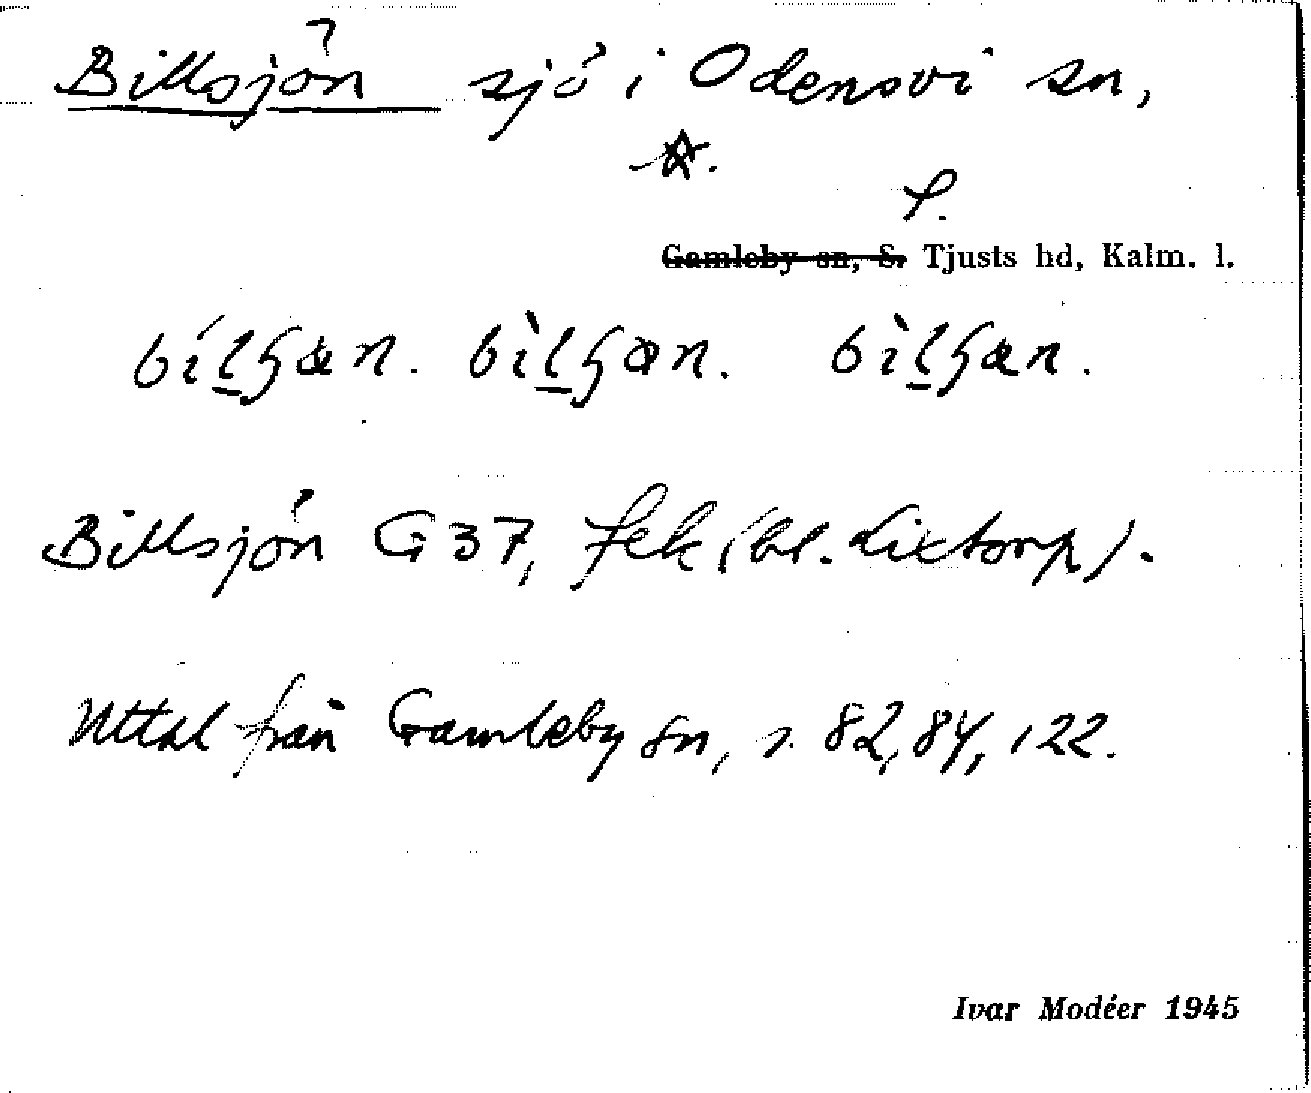 Billsjön sjö i Odensvi sn,
S.
Gamleby sn, S. Tjusts hd, Kalm. l.
Billsjön G 37, fek (bl. Lixtorp).
Uttal från Gamleby sn, s. 82, 84, 122.
Ivar Modéer 1945